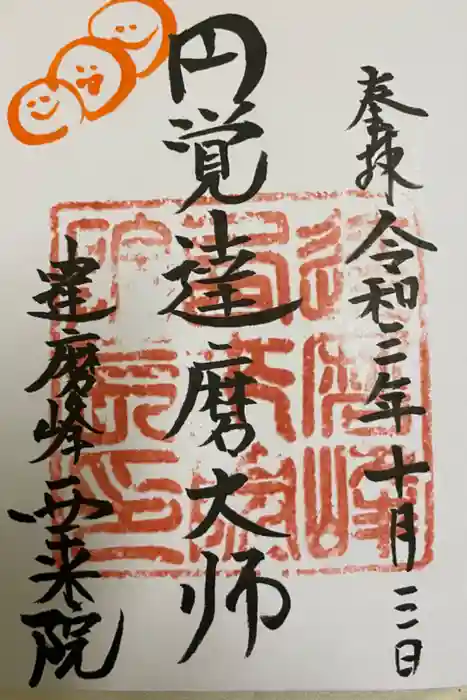 奉拝 令和三年十月三日
円覚達磨大师
達磨峰西来院